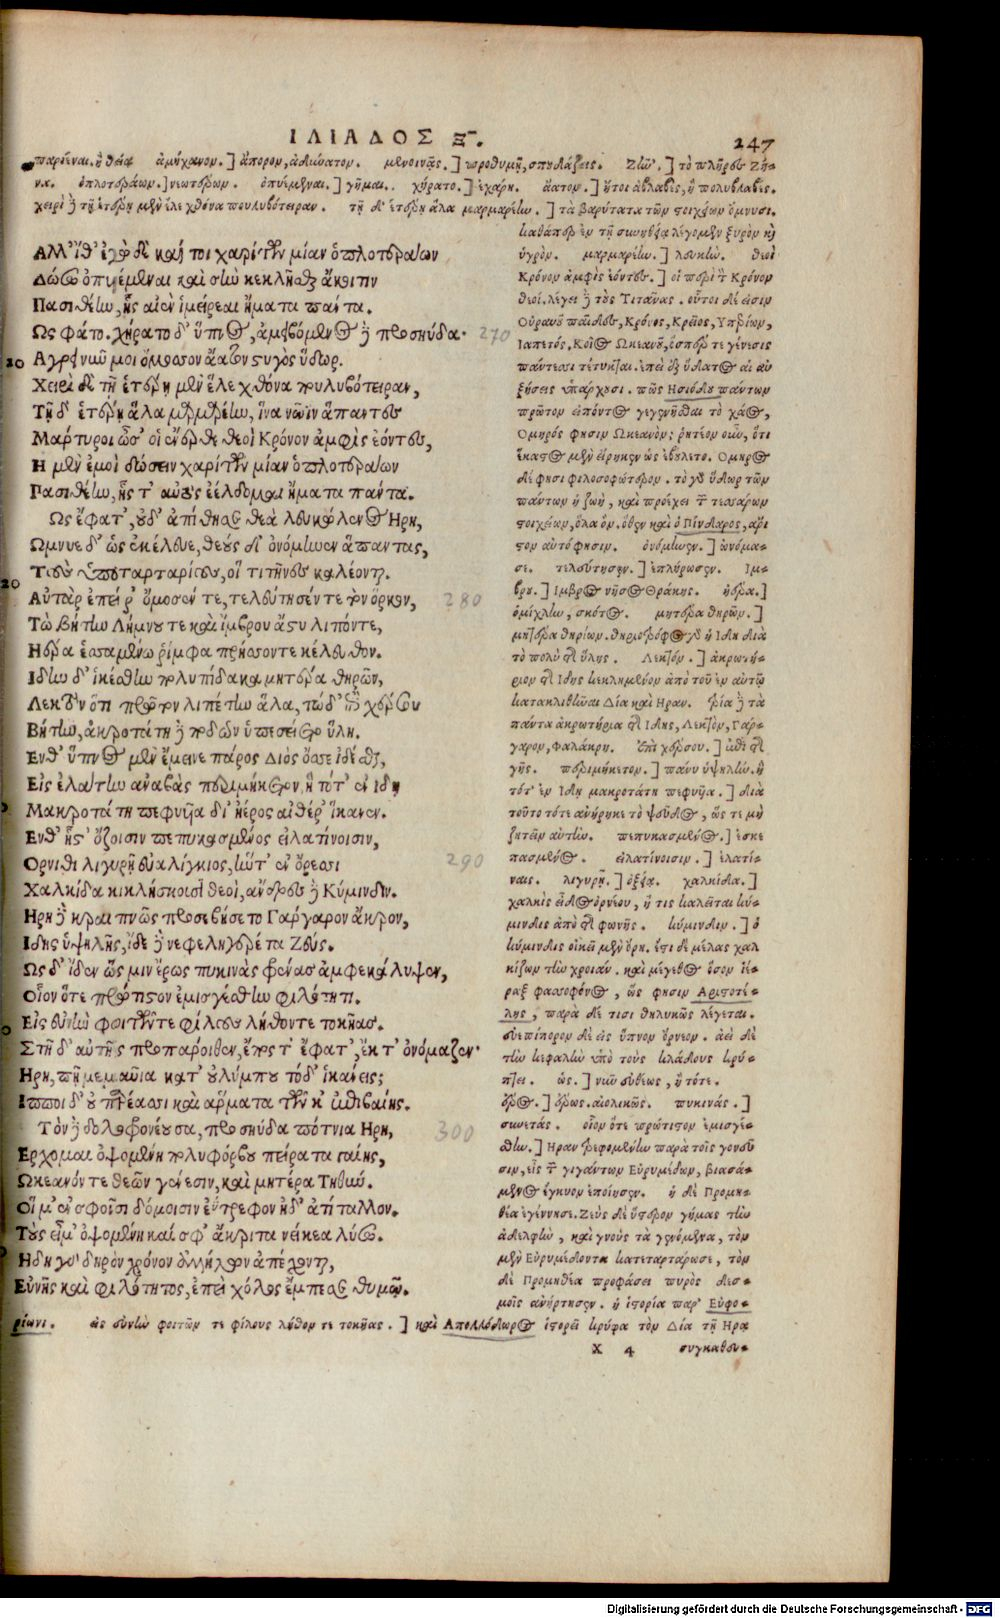 ΙΛΙΑΔΟΣ Ξ. 247
παρεῖναι, ἢ θεία ἀμήχανον.] ἄπορον, ἀδύνατον. μενοινᾷς.] προθυμῇ, σπουδάζεις. Ζῆν.] τὸ πλῆρες Ζῆ-
να. ὁπλοτεράων.] νεωτέρων. ὀπυιέμεναι.] γῆμαι. χήρατο.] ἐχάρη. ἄατον.] ἤτοι ἀβλαβὲς, ἢ πολυβλαβές.
χειρὶ δὲ τῇ ἑτέρῃ μὲν ἕλε χθόνα πουλυβότειραν. τῇ δ' ἑτέρῃ ἅλα μαρμαρέην.] τὰ βαρύτατα τῶν στοιχείων ὄμνυσι.
Αλλ' ἴθ' ἐγὼ δέ κέ τοι χαρίτων μίαν ὁπλοτεράων
Δώσω ὀπυιέμεναι καὶ σὴν κεκλῆσθαι ἄκοιτιν
Πασιθέην, ἧς αἰὲν ἱμείρεαι ἤματα πάντα.
Ως φάτο. χήρατο δ' ὕπνος, ἀμειβόμενος δὲ προσηύδα. 270
10 Αγρει νῦν μοι ὄμοσον ἄατον στυγὸς ὕδωρ.
Χειρὶ δὲ τῇ ἑτέρῃ μὲν ἕλε χθόνα πουλυβότειραν,
Τῇ δ' ἑτέρῃ ἅλα μαρμαρέην, ἵνα νῶϊν ἅπαντες
Μάρτυροι ὦσ' οἱ ἔνερθε θεοὶ Κρόνον ἀμφὶς ἐόντες,
Η μὲν ἐμοὶ δώσειν χαρίτων μίαν ὁπλοτεράων
Πασιθέην, ἧς τ' αὐτὸς ἐέλδομαι ἤματα πάντα.
Ως ἔφατ', οὐδ' ἀπίθησε θεὰ λευκώλενος Ηρη,
Ωμνυε δ' ὡς ἐκέλευε, θεοὺς δ' ὀνόμηνεν ἅπαντας,
Τοὺς ὑποταρταρίους, οἳ τιτῆνες καλέονται.
20 Αὐτὰρ ἐπεί ῥ' ὄμοσέν τε, τελεύτησέν τε τὸν ὅρκον, 280
Τὼ βήτην Λήμνου τε καὶ ἴμβρου ἄστυ λιπόντε,
Ηέρα ἑσσαμένω ῥίμφα πρήσσοντε κέλευθον.
Ιδην δ' ἱκέσθην πολυπίδακα μητέρα θηρῶν,
Λεκτὸν ὅτι πρῶτον λιπέτην ἅλα, τὼ δ' ἐπὶ χέρσου
Βήτην, ἀκροτάτη δὲ ποδῶν ὑπεσείετο ὕλη.
Ενθ' ὕπνος μὲν ἔμεινε πάρος Διὸς ὄσσε ἰδέσθαι,
Εἰς ἐλάτην ἀναβὰς περιμήκετον, ἣ τότ' ἐν Ιδῃ
Μακροτάτη πεφυῖα δι' ἠέρος αἰθέρ' ἵκανεν.
Ενθ' ἧστ' ὄζοισιν πεπυκασμένος εἰλατίνοισιν,
Ορνιθι λιγυρῇ ἐναλίγκιος, ἥν τ' ἐν ὄρεσσι 290
Χαλκίδα κικλήσκουσι θεοὶ, ἄνδρες δὲ Κύμινδιν.
Ηρη δὲ κραιπνῶς προσεβήσετο Γάργαρον ἄκρον,
Ιδης ὑψηλῆς, ἴδε δὲ νεφεληγερέτα Ζεύς.
Ως δ' ἴδεν ὥς μιν ἔρως πυκινὰς φρένας ἀμφεκάλυψεν,
Οἷον ὅτε πρώτιστον ἐμισγέσθην φιλότητι.
Εἰς εὐνὴν φοιτῶντε φίλους λήθοντε τοκῆας.
Στῆ δ' αὐτῆς προπάροιθεν, ἔπος τ' ἔφατ', ἔκ τ' ὀνόμαζεν.
Ηρη, πῇ μεμαυῖα κατ' οὐλύμπου τόδ' ἱκάνεις;
Ιπποι δ' οὐ παρέασι καὶ ἅρματα τῶν κ' ἐπιβαίης.
Τὸν δὲ δολοφρονέουσα, προσηύδα πότνια Ηρη, 300
Ερχομαι ὀψομένη πολυφόρβου πείρατα γαίης,
Ωκεανόν τε θεῶν γένεσιν, καὶ μητέρα Τηθύν.
Οἵ μ' ἐν σφοῖσι δόμοισιν ἐΰτρεφον ἠδ' ἀτίταλλον.
Τοὺς εἶμ' ὀψομένη καί σφ' ἄκριτα νείκεα λύσω.
Ηδη γὰρ δηρὸν χρόνον ἀλλήλων ἀπέχονται,
Εὐνῆς καὶ φιλότητος, ἐπεὶ χόλος ἔμπεσε θυμῷ.
καθάπερ ἐν τῇ συνηθείᾳ λέγομεν ξηρὸν καὶ
ὑγρόν. μαρμαρέην.] λευκήν. θεοὶ
Κρόνον ἀμφὶς ἐόντες.] οἱ περὶ τὸν Κρόνον
θεοί. λέγει δὲ τοὺς Τιτᾶνας. οὗτοι δέ εἰσιν
Οὐρανοῦ παῖδες, Κρόνος, Κρεῖος, Υπερίων,
Ιαπετὸς, Κοῖος Ωκεανοῦ, ὅσπερ τε γένεσις
πάντεσσι τέτυκται. ἐπεὶ ἐξ ὕδατος αἱ αὐ
ξήσεις ὑπάρχουσι. πῶς Ησιόδου πάντων
πρῶτον εἰπόντος γεγενῆσθαι τὸ χάος,
Ομηρός φησιν Ωκεανόν; ῥητέον οὖν, ὅτι
ἕκαστος μὲν εἴρηκεν ὡς ἐβούλετο. Ομηρος
δέ φησι φιλοσοφώτερον. τὸ γὰρ ὕδωρ τῶν
πάντων ἡ ζωὴ, καὶ προέχει τῶν τεσσάρων
στοιχείων, ὅλα ὄν. ὅθεν καὶ ὁ Πίνδαρος, ἄρι
στον αὐτό φησιν. ὀνόμηνεν.] ὠνόμα-
σε. τελεύτησεν.] ἐπλήρωσεν. Ιμ-
βρου.] Ιμβρος νῆσος Θρᾴκης. ἠέρα.]
ὀμίχλην, σκότος. μητέρα θηρῶν.]
μητέρα θηρίων. θηριοτρόφος γὰρ ἡ Ιδη διὰ
τὸ πολὺ τῆς ὕλης. Λεκτόν.] ἀκρωτή-
ριον τῆς Ιδης κεκλημένον ἀπὸ τοῦ ἐν αὐτῷ
κατακλιθῆναι Δία καὶ Ηραν. τρία δὲ τὰ
πάντα ἀκρωτήρια τῆς Ιδης, Λεκτὸν, Γάρ-
γαρον, Φαλάκρη. ἐπὶ χέρσου.] ἐπὶ τῆς
γῆς. περιμήκετον.] πάνυ ὑψηλήν. ἣ
τότ' ἐν Ιδῃ μακροτάτη πεφυῖα.] διὰ
τοῦτο τότε ἀνῄρηκε τὸ ψεῦδος, ὥς τε μὴ
ζητεῖν αὐτήν. πεπυκασμένος.] ἐσκε
πασμένος. εἰλατίνοισιν.] ἐλατί-
ναις. λιγυρῇ.] ὀξείᾳ. χαλκίδα.]
χαλκὶς εἶδος ὀρνέου, ἥ τις καλεῖται κύ-
μινδις ἀπὸ τῆς φωνῆς. κύμινδιν.] ὁ
κύμινδις οἰκεῖ μὲν ὄρη. ἔστι δὲ μέλας χαλ
κίζων τὴν χροιάν. καὶ μέγεθος ὅσον ἱέ-
ραξ φασσοφόνος, ὥς φησιν Αριστοτέ-
λης, παρὰ δέ τισι θηλυκῶς λέγεται.
συνεπίφορον δὲ εἰς ὕπνον ὄρνεον. ἀεὶ δὲ
τὴν κεφαλὴν ὑπὸ τοὺς κλάδους κρύ-
πτει. ὡς.] νῦν εὐθέως, ἢ τότε.
ἔρος.] ἔρως. αἰολικῶς. πυκινάς.]
συνετάς. οἷον ὅτε πρώτιστον ἐμισγέ-
σθην.] Ηραν τρεφομένην παρὰ τοῖς γονεῦ
σιν, εἷς τῶν γιγάντων Εὐρυμέδων, βιασά-
μενος ἔγκυον ἐποίησεν. ἡ δὲ Προμη-
θέα ἐγέννησε. Ζεὺς δὲ ὕστερον γήμας τὴν
ἀδελφὴν, καὶ γνοὺς τὰ γενόμενα, τὸν
μὲν Εὐρυμέδοντα κατεταρτάρωσε, τὸν
δὲ Προμηθέα προφάσει πυρὸς δεσ-
μοῖς ἀνήρτησεν. ἡ ἱστορία παρ' Εὐφο-
ρίωνι. εἰς εὐνὴν φοιτῶν τε φίλους λῆθον τε τοκῆας.] καὶ Απολλόδωρος ἱστορεῖ κρύφα τὸν Δία τῇ Ηρᾳ
X 4 συγκαθευ-
Digitalisierung gefördert durch die Deutsche Forschungsgemeinschaft - DFG